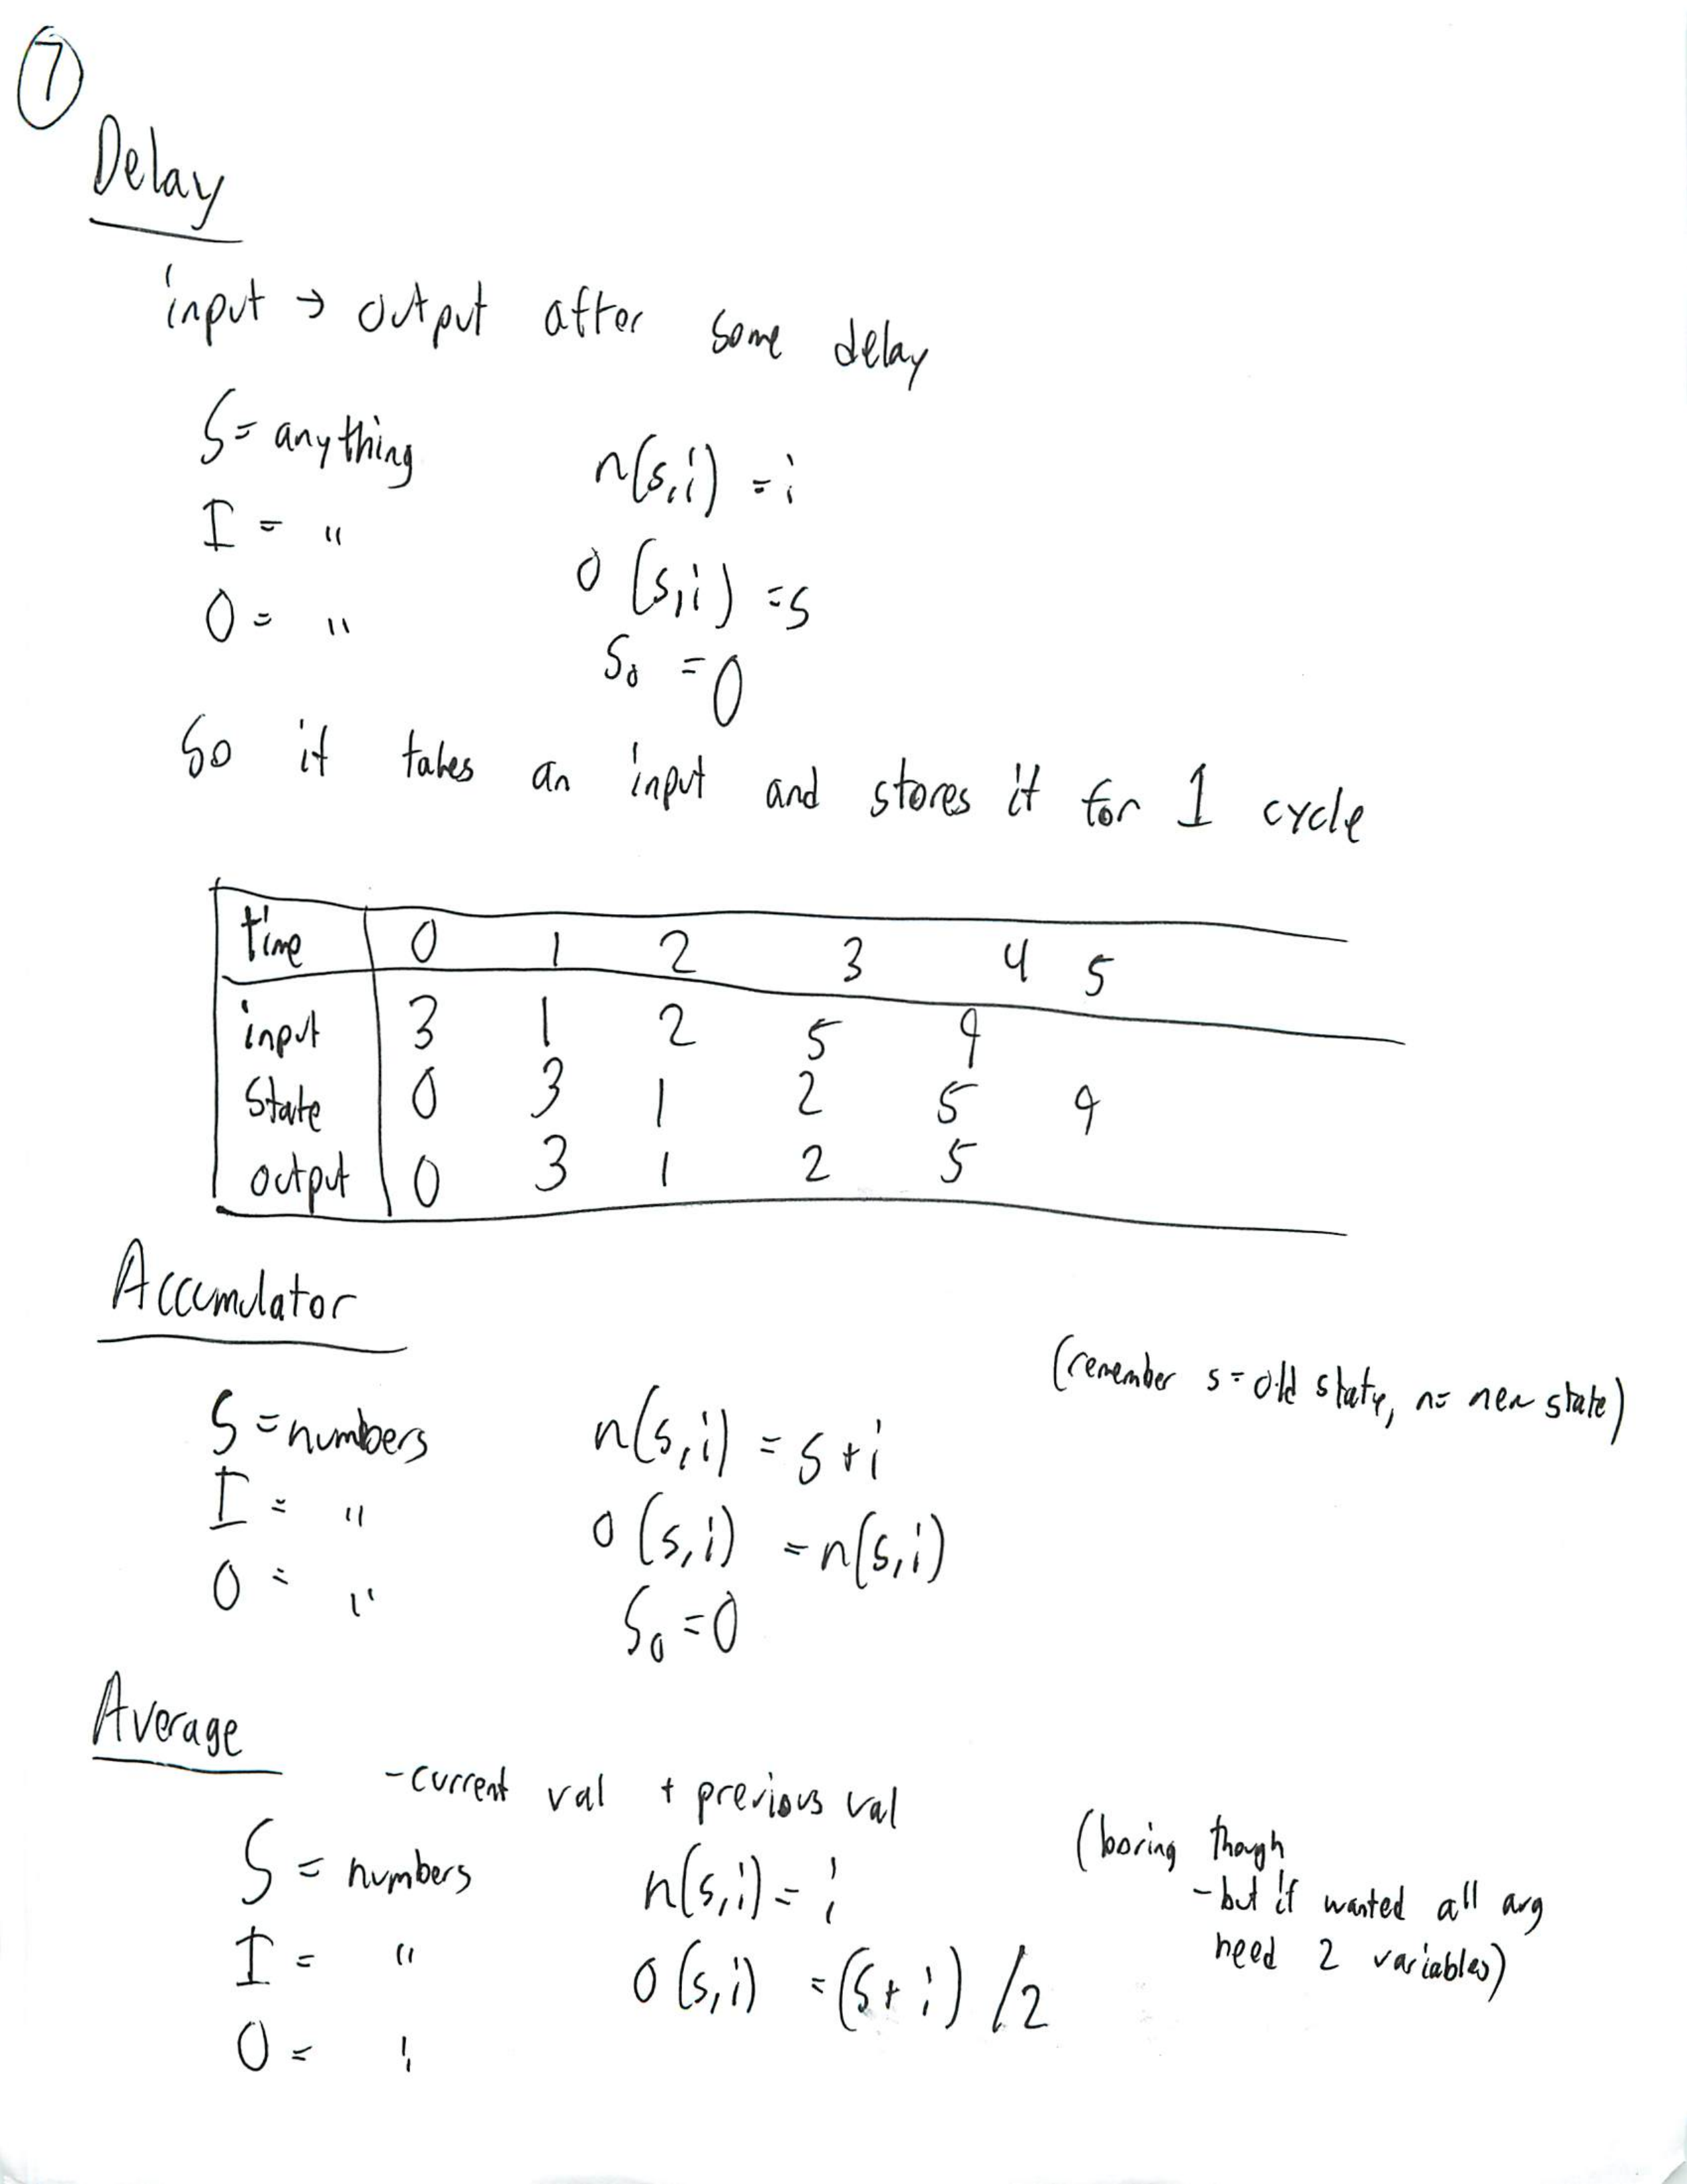 7
Delay
input → output after some delay
S = anything n(s,i) = i
I = " o(s,i) = s
O = " S₀ = 0
So it takes an input and stores it for 1 cycle
time 0 1 2 3 4 5
input 3 1 2 5 9
State 0 3 1 2 5 9
output 0 3 1 2 5
Accumulator
(remember s = old state, n = new state)
S = numbers n(s,i) = s + i
I = " o(s,i) = n(s,i)
O = " S₀ = 0
Average
- current val + previous val
S = numbers n(s,i) = i
I = " o(s,i) = (s + i) / 2
O = "
(boring though
- but if wanted all avg
need 2 variables)